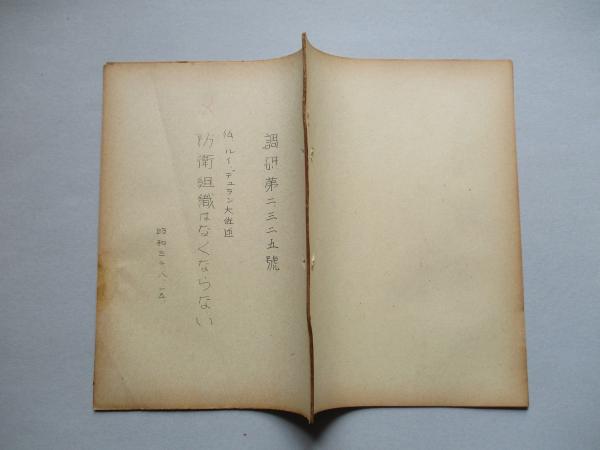 調研第二三二五號
仏 ルイ・デュラン大佐述
防衛組織はなくならない
昭和三十八.一五